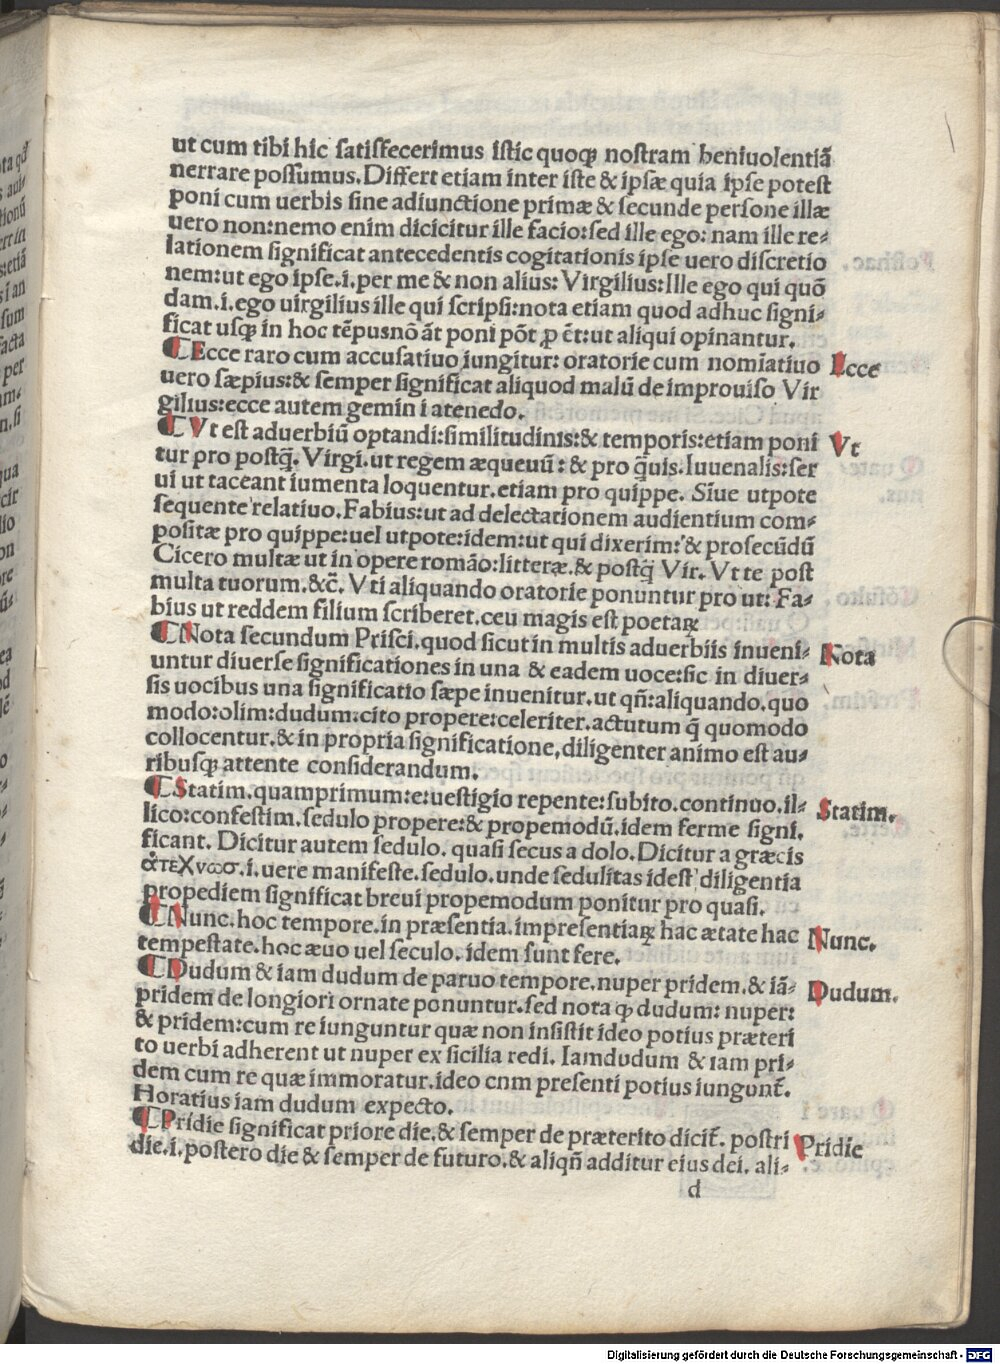 ut cum tibi hic satisfecerimus istic quoqꝫ nostram beniuolentiã
nerrare possumus. Differt etiam inter iste & ipsæ quia ipse potest
poni cum uerbis sine adiunctione primæ & secunde persone illæ
uero non:nemo enim dicicitur ille facio:sed ille ego: nam ille re⸗
lationem significat antecedentis cogitationis ipse uero discretio
nem:ut ego ipse.i.per me & non alius: Virgilius:Ille ego qui quõ
dam.i.ego uirgilius ille qui scripsi:nota etiam quod adhuc signi⸗
ficat usqꝫ in hoc tẽpusnõ ãt poni põt ꝓ c̃t:ut aliqui opinantur.
¶Ecce raro cum accusatiuo iungitur: oratorie cum nomĩatiuo
uero sæpius:& semper significat aliquod malũ de improuiso Vir
gilius:ecce autem gemin i atenedo.
Ecce
¶Vt est aduerbiũ optandi:similitudinis:& temporis:etiam poni
tur pro postq̃. Virgi.ut regem æqueuũ: & pro q̃uis.Iuuenalis:ser
ui ut taceant iumenta loquentur.etiam pro quippe. Siue utpote
sequente relatiuo.Fabius:ut ad delectationem audientium com⸗
positæ pro quippe:uel utpote:idem:ut qui dixerim:& prosecũdũ
Cicero multæ ut in opere romão:litteræ.& postq̃ Vir. Vt te post
multa tuorum.&c̃. Vti aliquando oratorie ponuntur pro ut: Fa⸗
bius ut reddem filium scriberet.ceu magis est poetaꝝ
Vt
¶Nota secundum Prisci.quod sicut in multis aduerbiis inueni⸗
untur diuerse significationes in una & eadem uoce:sic in diuer⸗
sis uocibus una significatio sæpe inuenitur.ut qñ:aliquando.quo
modo:olim:dudum:cito propere:celeriter.actutum q̃ quomodo
collocentur.& in propria significatione,diligenter animo est au⸗
ribusqꝫ attente considerandum.
Nota
¶Statim.quamprimum:e:uestigio repente:subito.continuo.il⸗
lico:confestim.sedulo propere:& propemodũ.idem ferme signi.
ficant. Dicitur autem sedulo. quasi secus a dolo.Dicitur a græcis
ατεχνωσ.i.uere manifeste.sedulo.unde sedulitas idest diligentia
propediem significat breui propemodum ponitur pro quasi.
Statim.
¶Nunc.hoc tempore.in præsentia.impresentiaꝝ hac ætate hac
tempestate.hoc æuo uel seculo.idem sunt fere.
Nunc.
¶Dudum & iam dudum de paruo tempore.nuper pridem.& iã⸗
pridem de longiori ornate ponuntur.sed nota ꝙ dudum: nuper:
& pridem:cum re iunguntur quæ non insistit ideo potius præteri
to uerbi adherent ut nuper ex sicilia redi. Iamdudum & iam pri⸗
dem cum re quæ immoratur.ideo cnm presenti potius iungunt̃.
Horatius iam dudum expecto.
Dudum.
¶Pridie significat priore die.& semper de præterito dicit̃. postri
die.i.postero die & semper de futuro.& aliqñ additur eius dei. ali⸗
Pridie
d
Digitalisierung gefördert durch die Deutsche Forschungsgemeinschaft - DFG